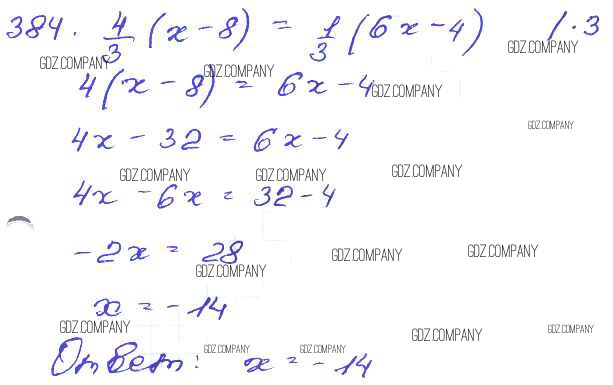 384. 4/3 (x - 8) = 1/3 (6x - 4) / · 3
GDZ.COMPANY GDZ.COMPANY GDZ.COMPANY
4(x - 8) = 6x - 4
GDZ.COMPANY GDZ.COMPANY
4x - 32 = 6x - 4
GDZ.COMPANY GDZ.COMPANY GDZ.COMPANY
4x - 6x = 32 - 4
-2x = 28
GDZ.COMPANY GDZ.COMPANY GDZ.COMPANY
x = -14
GDZ.COMPANY GDZ.COMPANY GDZ.COMPANY
Ответ: x = -14
GDZ.COMPANY GDZ.COMPANY